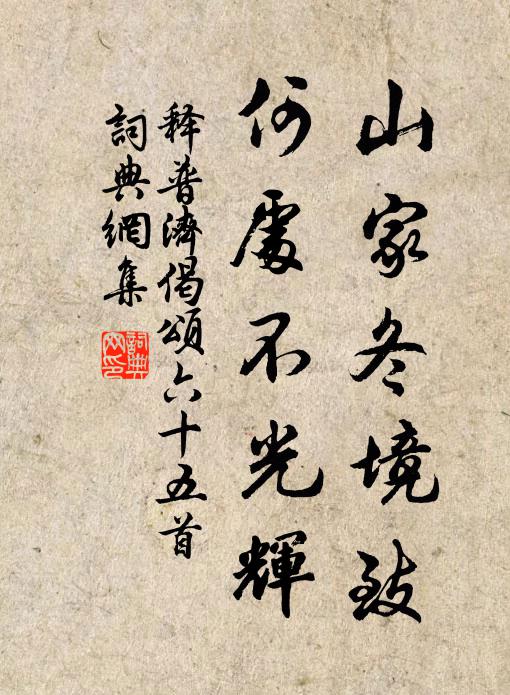 山家冬境致
何處不光輝
释普濟偈頌六十五首
詞典網集
詞典网印